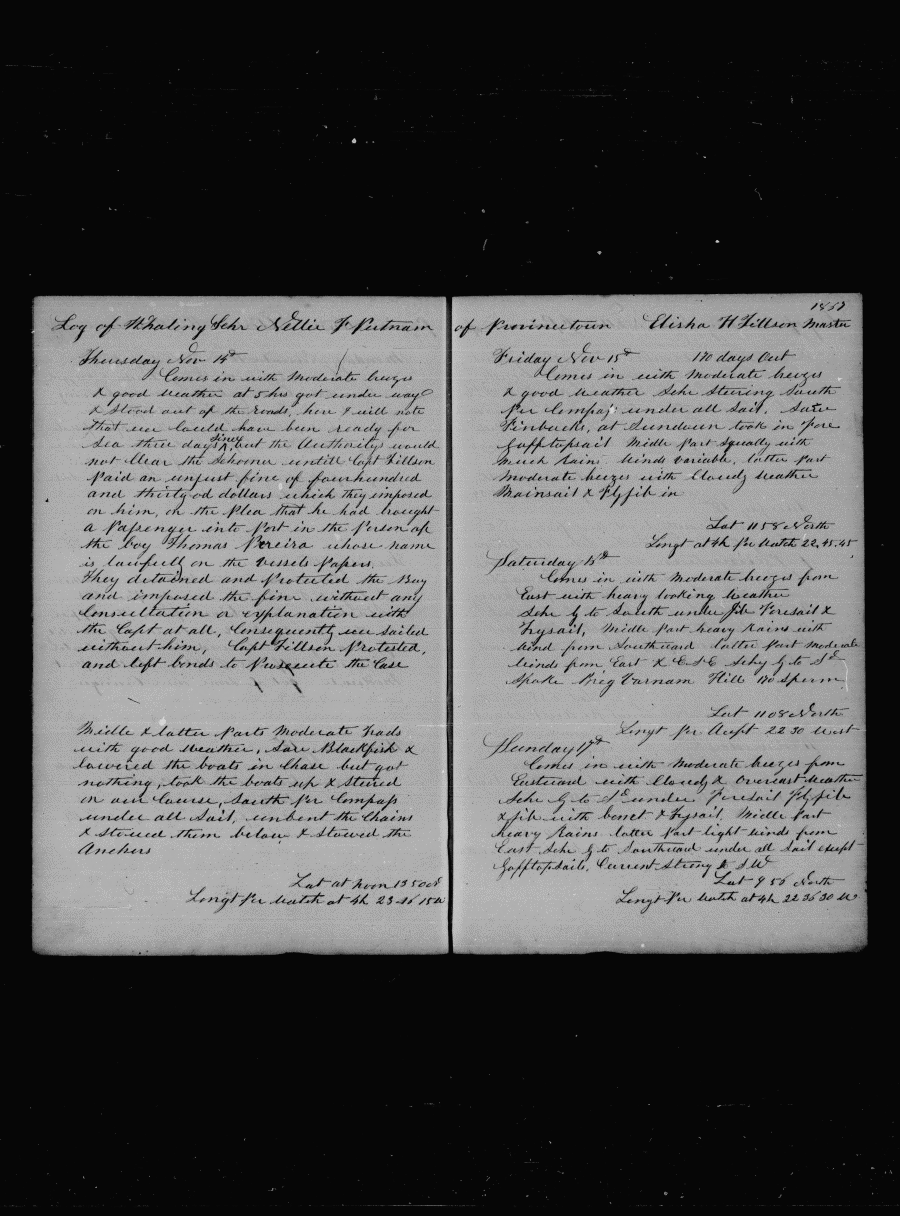 Log of Whaling Schr Nellie F Putnam
Thursday Nov 14th
Comes in with Moderate breezes
& good weather at 5 hrs got under way
& stood out of the roads, here I will note
that we could have been ready for
sea three days since but the Authoritys would
not Clear the Schooner untill Capt Tillson
Paid an unjust fine of fourhundred
and thirty od dollars which they imposed
on him, on the Plea that he had brought
a Passenger into Port in the Person of
the boy Thomas Pereira whose name
is lawfully on the vessels Papers.
They detained and Protected the Boy
and imposed the fine without any
Consultation or explanation with
the Capt at all, Consequently we sailed
without him, Capt Tillson Protested,
and left bonds to Prosecute the Case
Midle & latter Parts Moderate trads
with good weather, Saw Blackfish &
lowered the boats in Chase but got
nothing, took the boats up & steered
on our Course, South Per Compass
under all Sail, unbent the Chains
& stowed them below & stowed the
Anchors
Lat at Noon 13 50 N
Longt Per Watch at 4h 23 46 15 W
1457
of Provincetown Elisha H Tillson Master
Friday Nov 15th 170 days Out
Comes in with Moderate breezes
& good weather Schr Steering South
Per Compass under all Sail. Saw
Finbacks, at Sundown took in Fore
Gafftopsail Midle Part Squally with
Much Rain winds variable, latter Part
Moderate breezes with Cloudy weather
Mainsail & Flyjib in
Lat 11 58 North
Longt at 4h Per Watch 22,45,45
Saturday 16th
Comes in with Moderate breezes from
East with heavy looking weather
Schr G to South under jib Foresail &
Trysail, Midle Part heavy Rains with
wind from Southward latter Part Moderate
winds from East & E S E Schr G to Sd
Spoke Brig Varnum Hill 170 Sperm
Lat 11 08 North
Longt Per Acupt 22 30 West
Sunday 17th
Comes in with Moderate breezes from
Eastward with Cloudy & Overcast weather
Schr G to Sd under Foresail Flyjib
& jib with bonet & trysail, Midle Part
heavy Rains latter Part light winds from
East Schr G to Southward under all Sail except
Gafftopsails, Current Strong to S.W
Lat 9 56 North
Longt Per Watch at 4h 22 36 30 W